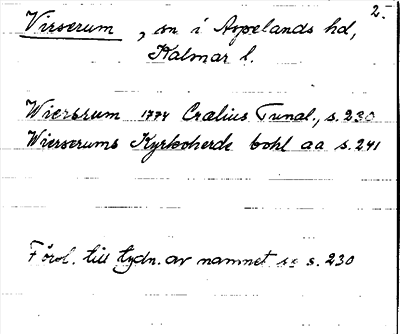 2.
Virserum, sn i Aspelands hd,
Kalmar l.
Wierserum 1774 Crælius Tunal., s. 230
Wierserums Kyrkoherde bohl aa s. 241
Försl. till tydn. av namnet se s. 230